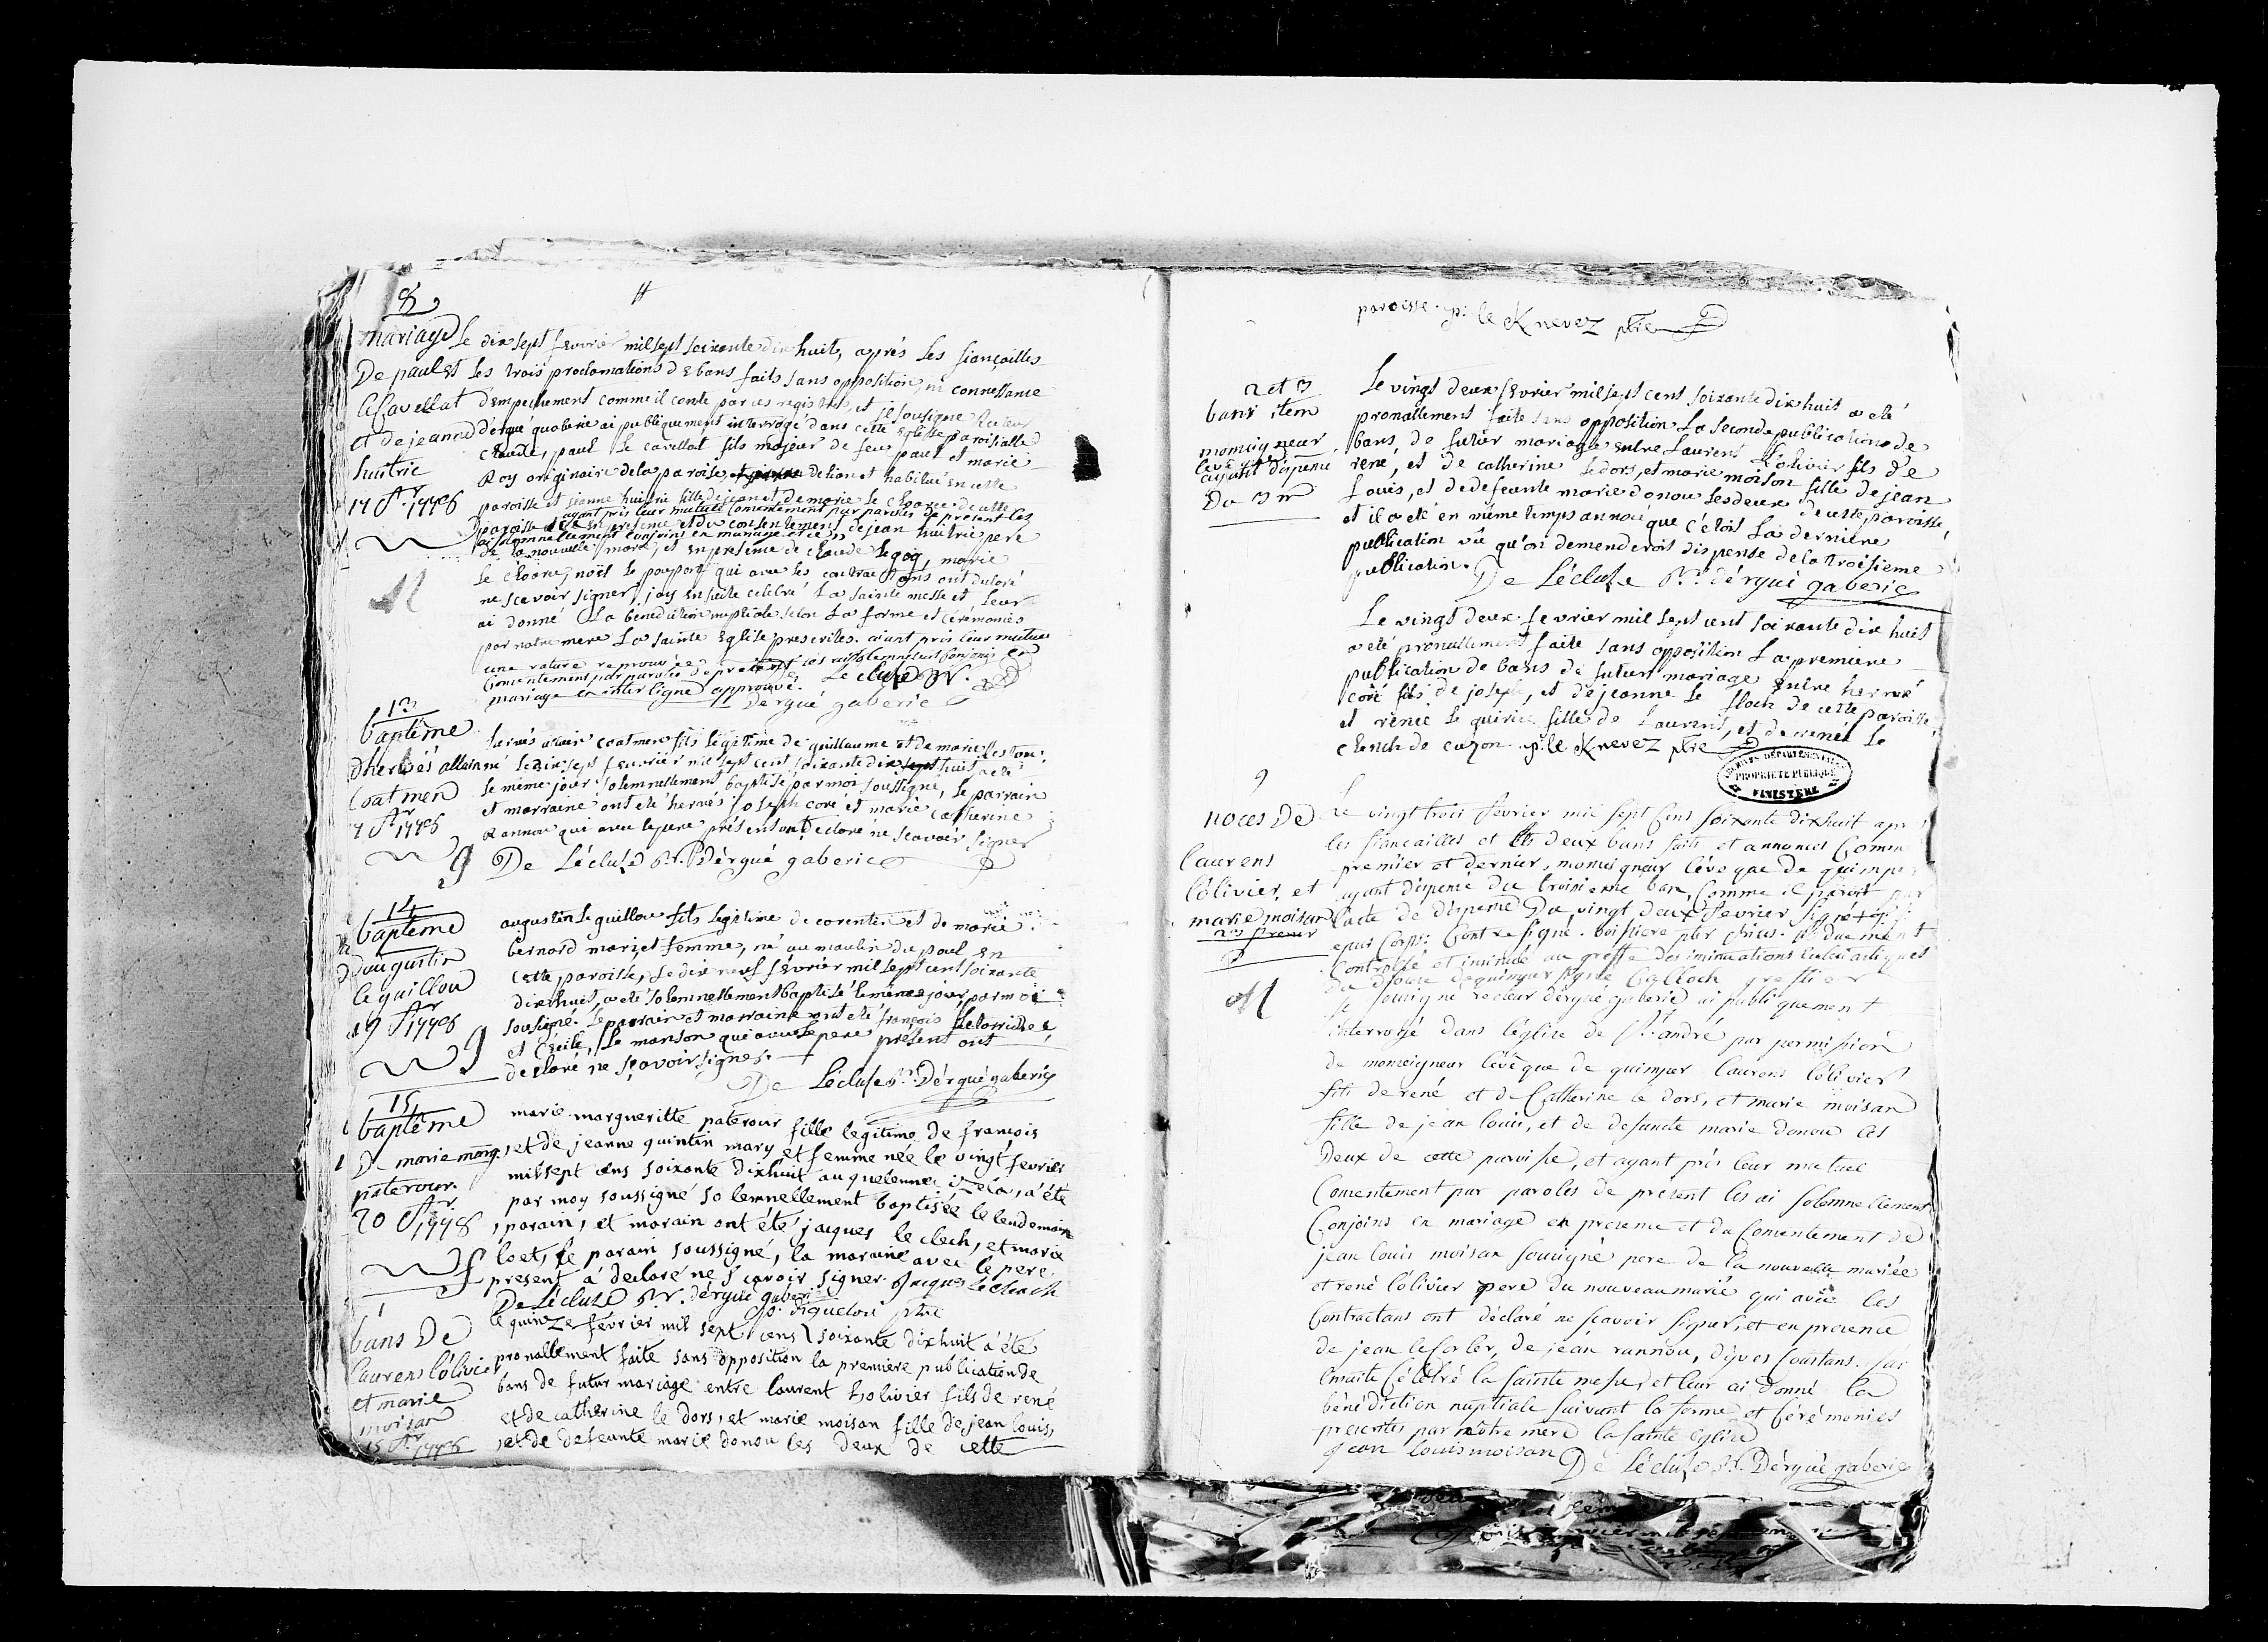 8
mariage
De paul
le Cavellat
et de jeanne
huitric
17 fr 1778
Le dix sept fevrier mil sept soixante dix huit, aprés les fiançailles
et les trois proclamations de bans faits sans opposition, ni connessance
d'empechement comme il conste par ces registres, et je sousigne Recteur
d'ergue gaberic ai publiquement interrogé dans cette Eglise paroisialle
claude, paul le cavellat fils majeur de feu paul et marie
Roy originaire de la paroise de lion et habitué en cette
paroisse et jeanne huitric fille de jean et de marie le choare de cette
paroisse ayant pris leur mutuel consentement par paroles de présent les
ai solemnellement conjoins en mariage et ce
en présence et du consentement de jean huitric pere
de la nouvelle marié, et en présence de claude le goq, marie
le choare, noël le poupon qui avec les contractans ont declaré
ne scavoir signer, j'ay ensuite celebré la sainte messe et leur
ai donné la bénédiction nuptiale selon la forme et cérémonies
par notre mere la sainte Eglise prescrites. aiant pris leur mutuel
une rature reprouvée
consentement par paroles de présent les ai solemnellement conjoins en
mariage en interligne approuvé. De Lécluse Rr.
Dergué gaberic
13
baptême
d'hervés allain
Coatmen
17 fr 1778
hervés alain coatmen fils légitime de guillaume et de marie
né le dix sept fevrier mil sept cent soixante dix huit a eté
le même jour solemnellement baptisé par moi soussigné, le parrain
et marraine ont eté hervés joseph coré et marie catherine
Rannou qui avec le pere présens ont déclaré ne scavoir signer
De Lécluse Rr. Dérgué gaberic
14
baptême
d'augustin
le guillou
19 fr 1778
augustin le guillou fils legitime de corentin et de marie
bernard mari et femme, né au moulin du poul en
cette paroisse, le dix neuf février mil sept cent soixante
dix huit, a eté solemnellement baptisé le même jour par moi
sousigné. le parrain et marraine ont eté françois
et Cécile, le manson qui avec le pere présent ont
declaré ne sçavoir signer.
De Lécluse Rr. Dérgué gaberic
15
baptême
De marie marg.
paterour.
20 fr 1778
marie margueritte paterour fille legitime de françois
, et de jeanne quintin mary et femme née le vingt fevrier
mil sept cens soixante dixhuit au quelennec izela, a été
par moy soussigné solemnellement baptisée le lendemain
, parain, et marain ont été jacques le clech, et marie
loet, le parain soussigné, la maraine avec le pere,
present a declaré ne scavoir signer. Jacques Lecleach
De Lécluse Rr. dérgué gaberic
bans De
laurens l'olivier
et marie
moisan
15 fr 1778
le quinze février mil sept cens soixante dixhuit a été
pronallement faite sans opposition la premiere publication de
bans de futur mariage entre laurent L'olivier fils de rené
et de catherine le dors, et marie moisan fille de jean louis,
, et de defeunte marie donou les deux de cette
paroisse. p: le Knevez ptre
2 et 3
bans item
monseigneur
l'evêque
ayant dispensé
Du 3m
Le vingt deux fevrier mil sept cent soixante dix huit a eté
pronallement faite sans opposition la seconde publication de
bans de futur mariage entre Laurent L'olivier fils de
rené, et de catherine le dors, et marie moison fille de jean
Louis, et de defeunte marie donou les deux de cette paroisse,
et il a eté en même temps annoncé que c'étoit la derniere
publication vû qu'on demenderoit dispense de la troisieme
publication. De Lécluse Rr. dérgué gaberic
Le vingt deux fevrier mil sept cent soixante dix huit
a eté pronallement faite sans opposition la premiere
publication de bans de futur mariage entre hervé
coré fils de joseph, et de jeanne le floch de cette paroisse,
et renée le quéric fille de Laurent, et de renée le
clench de cuzon. p: le Knevez ptre
ARCHIVES DÉPARTEMENTALES
PROPRIÉTÉ PUBLIQUE
FINISTÈRE
9
noces De
laurens
l'olivier, et
marie moisan
Le vingt trois fevrier mil sept cens soixante dixhuit apr
les fiançailles et les deux bans faits et annoncés comm
premier et dernier, monseigneur l'évêque de quimper
ayant dispensé du troisieme ban, comme il paroit par
l'acte de dispense du vingt deux fevrier signé
Contresigné. boissiere
Controllé et insinué au greffe des insinuations ecclesiastiques
du diocese de quimper signé Calloch greffier
je sousigné recteur d'ergué gaberic ai publiquement
interrogé dans l'église de St. andré par permission
de monseigneur l'évêque de quimper laurens l'olivier
fils de rené et de Catherine le dors, et marie moisan
fille de jean louis, et de defuncte marie donou les
Deux de cette paroisse, et ayant pris leur mutuel
Consentement par paroles de present les ai solemnellement
Conjoins en mariage en presence et du Consentement de
jean louis moisan sousigné pere de la nouvelle mariée
et rené l'olivier pere du nouveau marié qui avec les
Contractans ont déclaré ne scavoir signer, et en presence
de jean le corler, de jean rannou, d'yves coustans. j'ai
ensuite célébré la sainte messe, et leur ai donné la
bénédiction nuptiale suivant la forme et Cérémonies
prescrites par nôtre mere la sainte église
jean louis moisan De Lécluse Rr. Dérgué gaberic